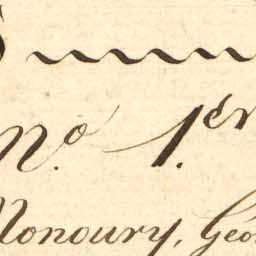 No. 1.er
Nonoury, Géo